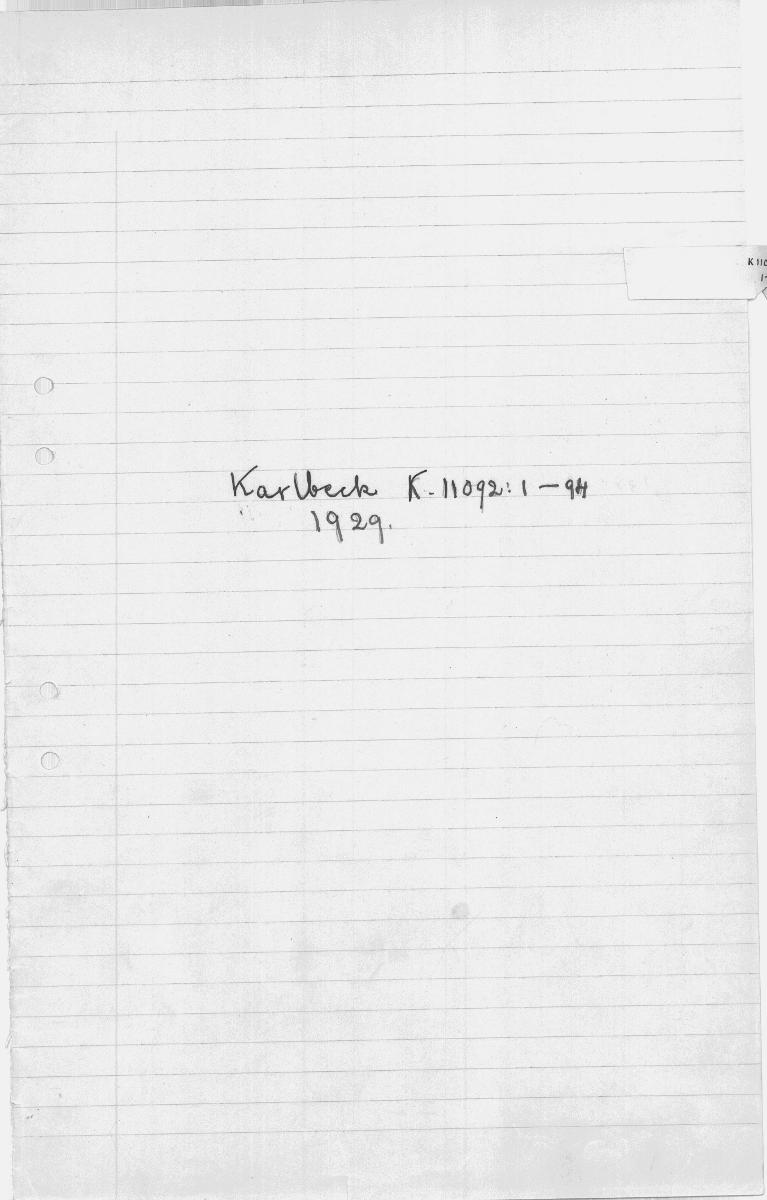 K 110
Karlbeck K-11092:1-94
1929.